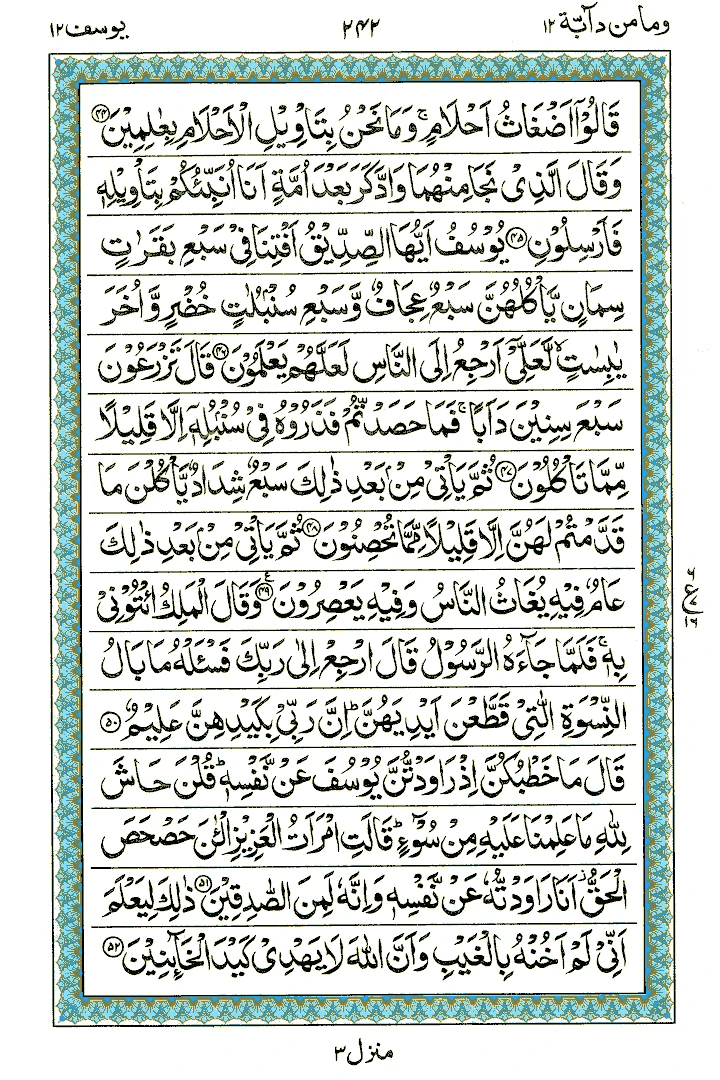 وما من دآبة ١٢
٢٤٢
يوسف ١٢
قَالُوْۤا اَضْغَاثُ اَحْلَامٍ ۚ وَمَا نَحْنُ بِتَاْوِيْلِ الْاَحْلَامِ بِعٰلِمِيْنَ ﴿۴۴﴾
وَقَالَ الَّذِىْ نَجَا مِنْهُمَا وَادَّكَرَ بَعْدَ اُمَّةٍ اَنَا اُنَبِّئُكُمْ بِتَاْوِيْلِهٖ
فَاَرْسِلُوْنِ ﴿۴۵﴾ يُوْسُفُ اَيُّهَا الصِّدِّيْقُ اَفْتِنَا فِىْ سَبْعِ بَقَرٰتٍ
سِمَانٍ يَّاْكُلُهُنَّ سَبْعٌ عِجَافٌ وَّسَبْعِ سُنْۢبُلٰتٍ خُضْرٍ وَّاُخَرَ
يٰبِسٰتٍ ۙ لَّعَلِّىْۤ اَرْجِعُ اِلَى النَّاسِ لَعَلَّهُمْ يَعْلَمُوْنَ ﴿۴۶﴾ قَالَ تَزْرَعُوْنَ
سَبْعَ سِنِيْنَ دَاَبًا ۚ فَمَا حَصَدْتُّمْ فَذَرُوْهُ فِىْ سُنْۢبُلِهٖۤ اِلَّا قَلِيْلًا
مِّمَّا تَاْكُلُوْنَ ﴿۴۷﴾ ثُمَّ يَاْتِىْ مِنْۢ بَعْدِ ذٰلِكَ سَبْعٌ شِدَادٌ يَّاْكُلْنَ مَا
قَدَّمْتُمْ لَهُنَّ اِلَّا قَلِيْلًا مِّمَّا تُحْصِنُوْنَ ﴿۴۸﴾ ثُمَّ يَاْتِىْ مِنْۢ بَعْدِ ذٰلِكَ
عَامٌ فِيْهِ يُغَاثُ النَّاسُ وَفِيْهِ يَعْصِرُوْنَ ﴿۴۹﴾ ع وَقَالَ الْمَلِكُ ائْتُوْنِىْ
٦
ع
٧
١٦
بِهٖ ۚ فَلَمَّا جَآءَهُ الرَّسُوْلُ قَالَ ارْجِعْ اِلٰى رَبِّكَ فَسْئَلْهُ مَا بَالُ
النِّسْوَةِ الّٰتِىْ قَطَّعْنَ اَيْدِيَهُنَّ ؕ اِنَّ رَبِّىْ بِكَيْدِهِنَّ عَلِيْمٌ ﴿۵۰﴾
قَالَ مَا خَطْبُكُنَّ اِذْ رَاوَدْتُّنَّ يُوْسُفَ عَنْ نَّفْسِهٖ ؕ قُلْنَ حَاشَ
لِلّٰهِ مَا عَلِمْنَا عَلَيْهِ مِنْ سُوْٓءٍ ؕ قَالَتِ امْرَاَتُ الْعَزِيْزِ الْئٰنَ حَصْحَصَ
الْحَقُّ ۫ اَنَا رَاوَدْتُّهٗ عَنْ نَّفْسِهٖ وَاِنَّهٗ لَمِنَ الصّٰدِقِيْنَ ﴿۵۱﴾ ذٰلِكَ لِيَعْلَمَ
اَنِّىْ لَمْ اَخُنْهُ بِالْغَيْبِ وَاَنَّ اللّٰهَ لَا يَهْدِىْ كَيْدَ الْخَآئِنِيْنَ ﴿۵۲﴾
منزل ٣